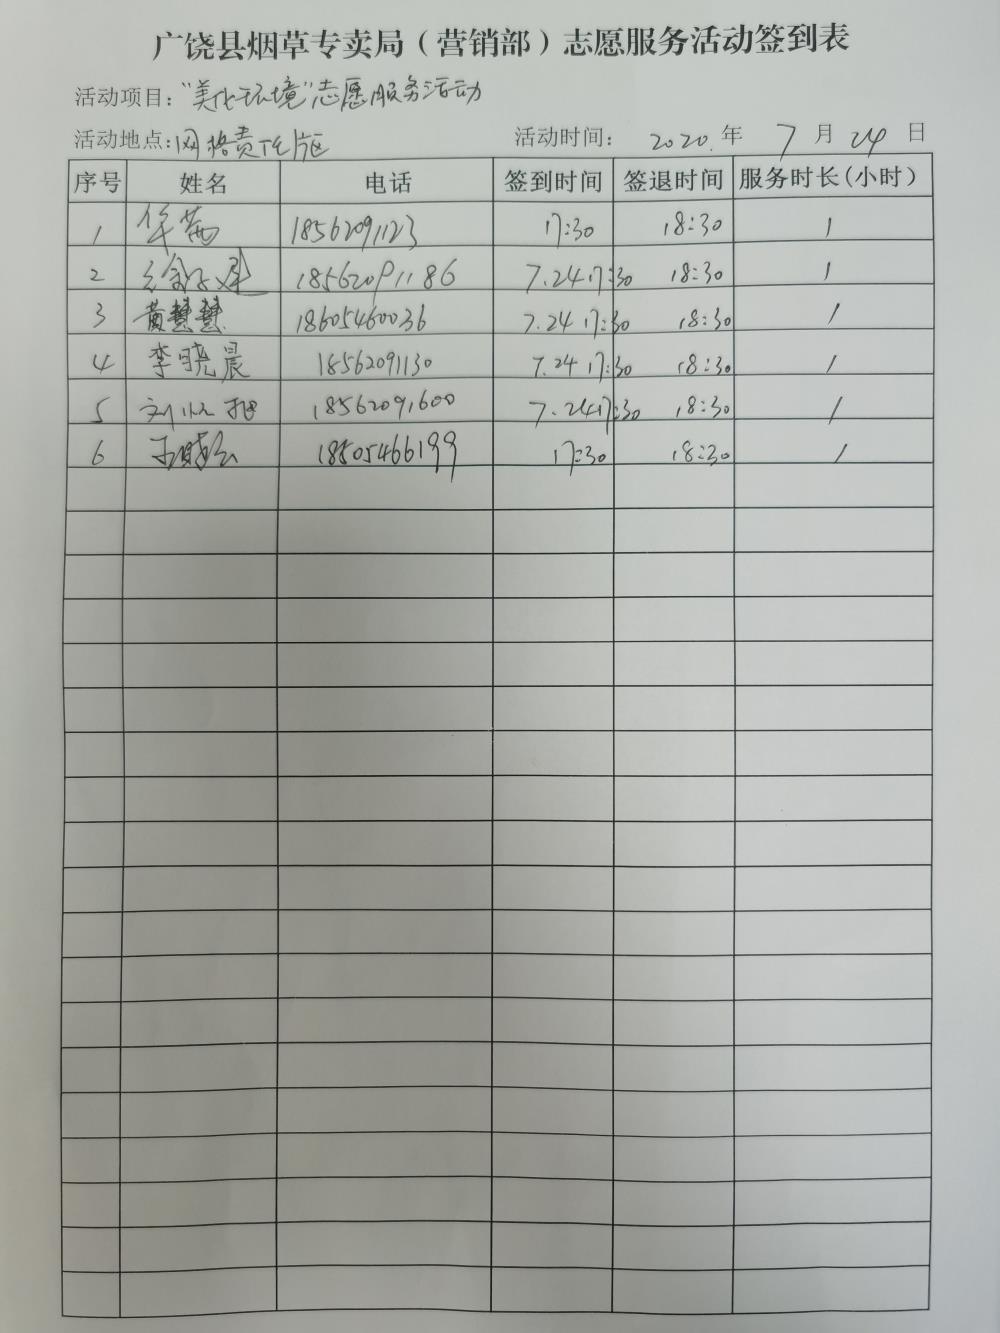 广饶县烟草专卖局（营销部）志愿服务活动签到表
活动项目："美化环境"志愿服务活动
活动地点：网格责任片区 活动时间： 2020.年 7 月 24 日
序号 姓名 电话 签到时间 签退时间 服务时长(小时）
1 华茜 18562091123 17:30 18:30 1
2 18562091186 7.24.17:30 18:30 1
3 黄慧慧 18605460036 7.24 17:30 18:30 1
4 李晓晨 18562091130 7.24 17:30 18:30 1
5 刘 18562091600 7.24 17:30 18:30 1
6 王 18505466199 17:30 18:30 1